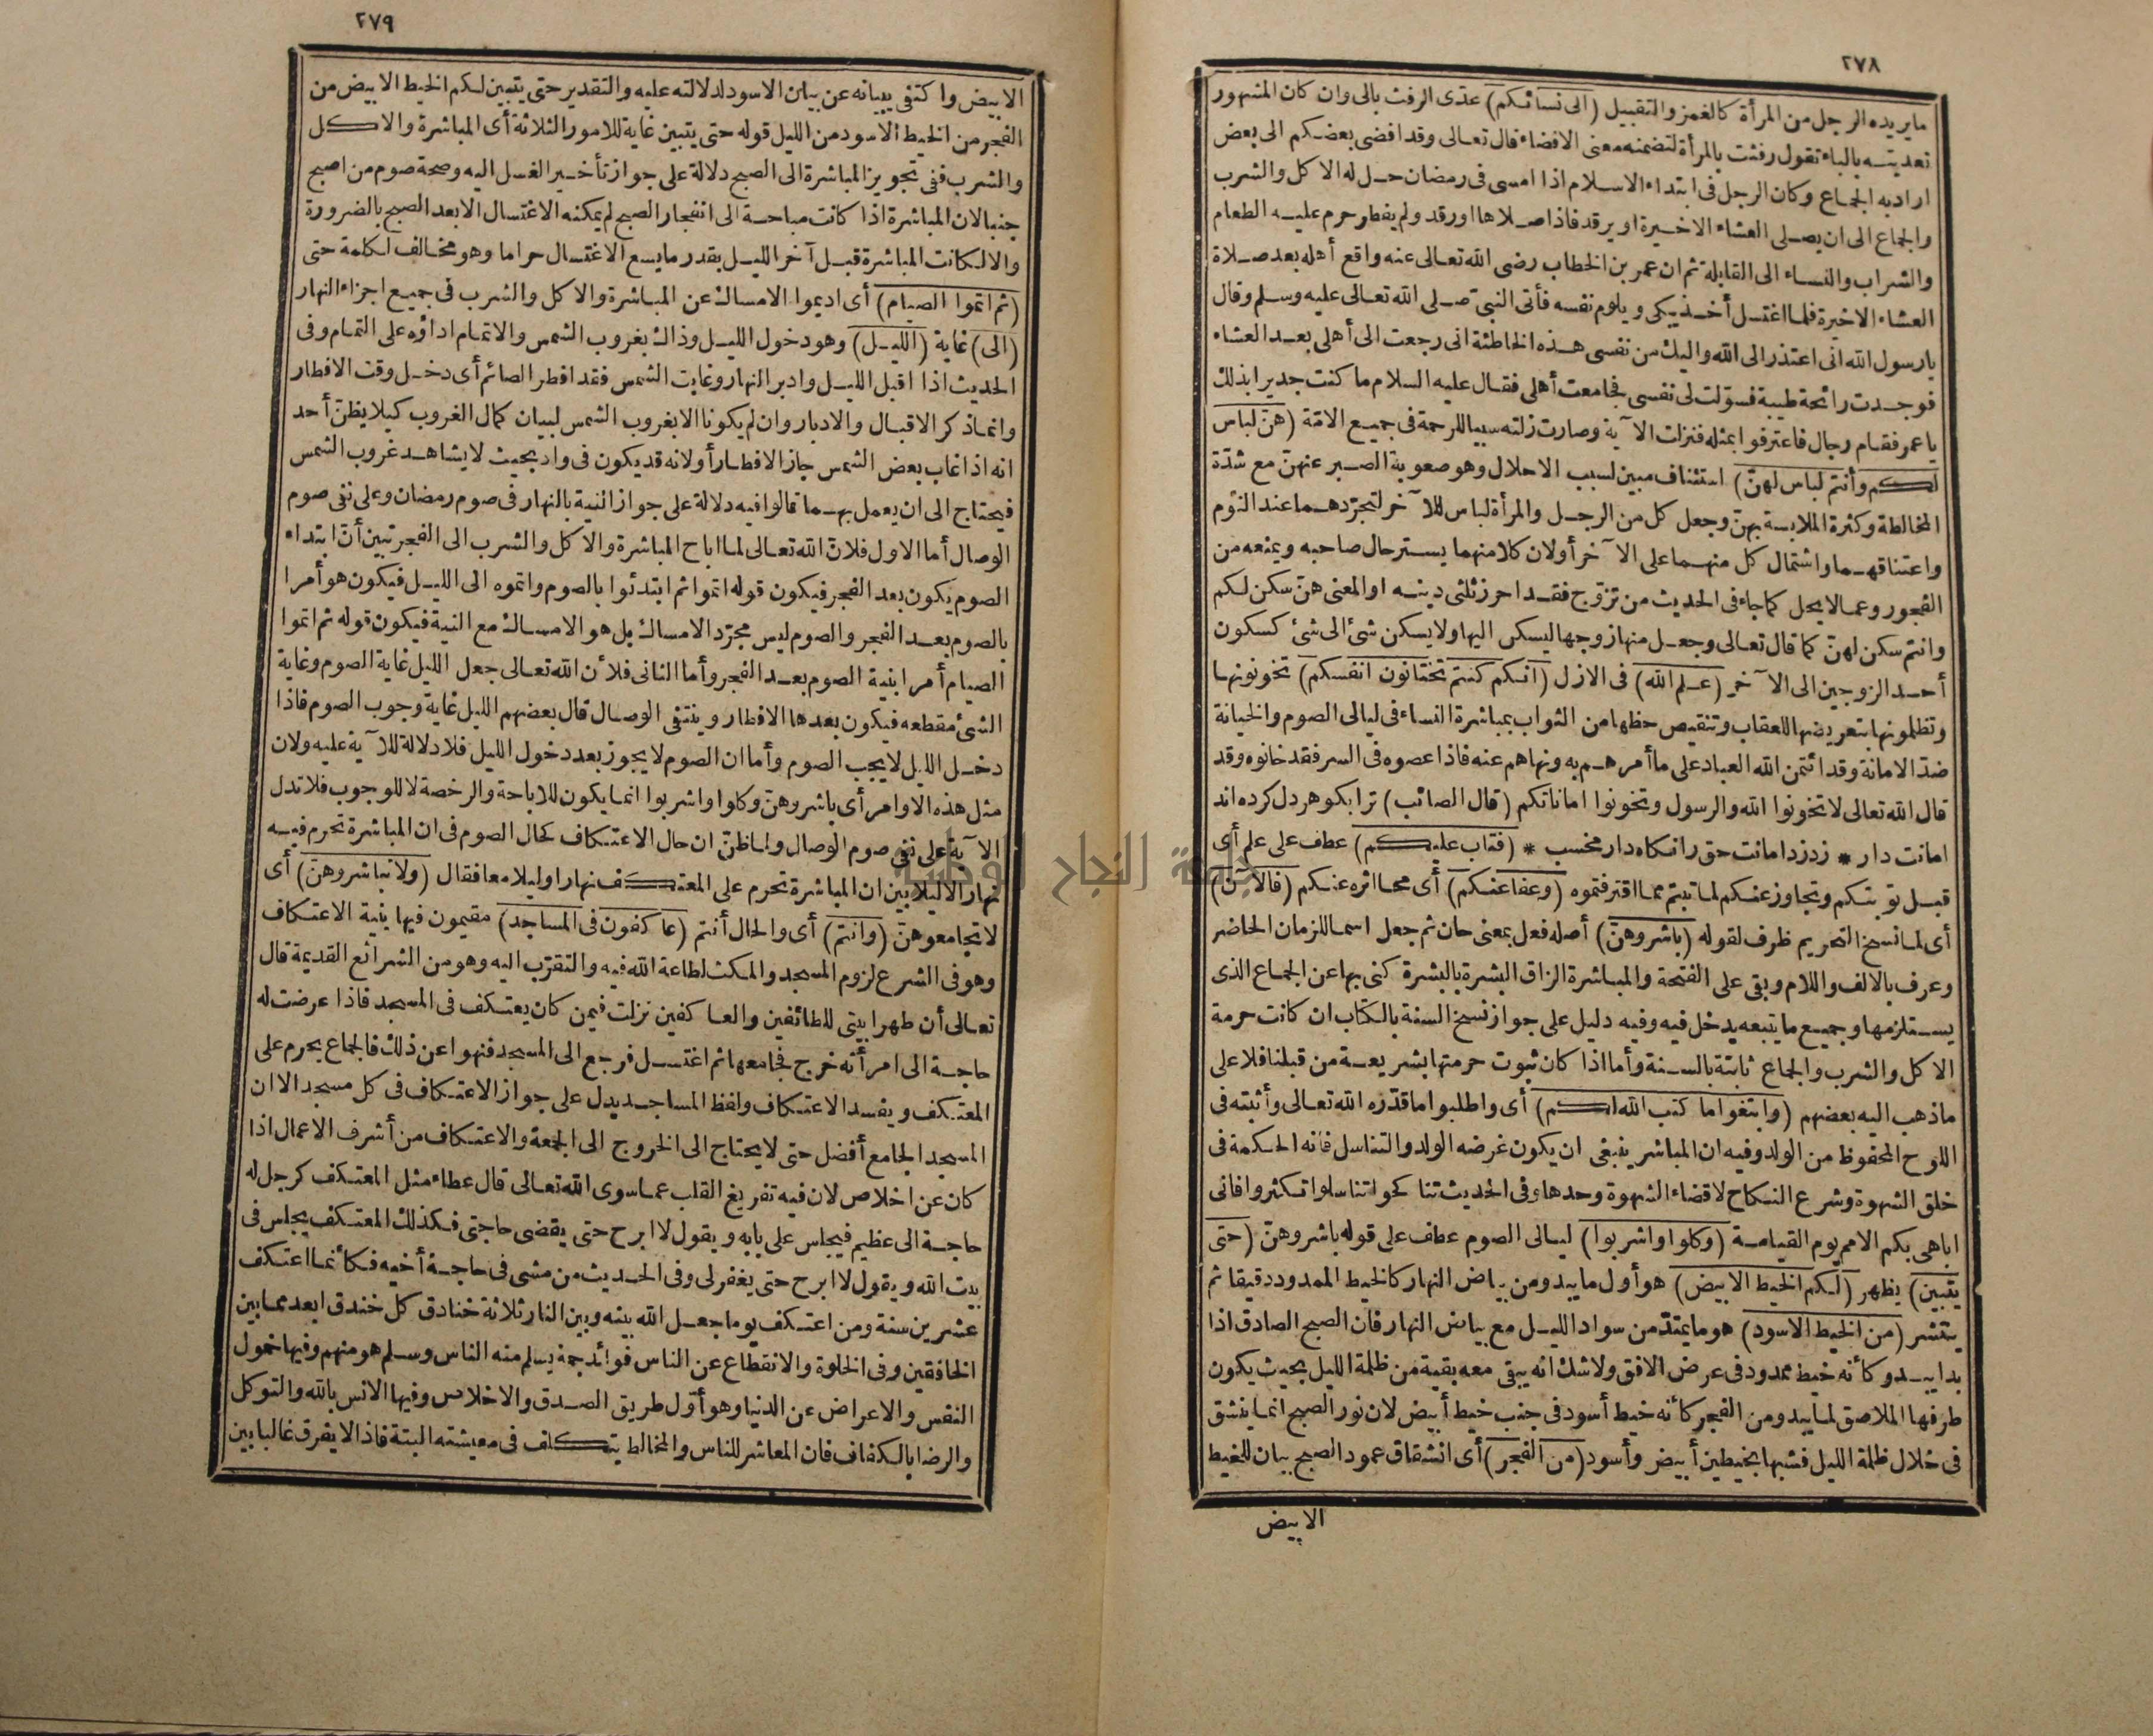 ٢٧٨
مايريده الرجل من المرأة كالغمز والتقبيل (الى نسائكم) عدّى الرفث بالى وان كان المشهور
تعديته بالباء تقول رفثت بالمرأة لتضمنه معنى الافضاء قال تعالى وقد افضى بعضكم الى بعض
اراد به الجماع وكان الرجل فى ابتداء الاسلام اذا امسى فى رمضان حل له الاكل والشرب
والجماع الى ان يصلى العشاء الاخيرة او يرقد فاذا صلاها او رقد ولم يفطر حرم عليه الطعام
والشراب والنساء الى القابلة ثم ان عمر بن الخطاب رضى الله تعالى عنه واقع أهله بعد صلاة
العشاء الاخيرة فلما اغتسل أخذ يبكى ويلوم نفسه فأتى النبىّ صلى الله تعالى عليه وسلم وقال
يارسول الله انى اعتذر الى الله واليك من نفسى هذه الخاطئة انى رجعت الى أهلى بعد العشاء
فوجدت رائحة طيبة فسوّلت لى نفسى فجامعت أهلى فقال عليه السلام ما كنت جديرا بذلك
ياعمر فقام رجال فاعترفوا بمثله فنزلت الآية وصارت زلته سببا للرحمة فى جميع الامّة (هنّ لباس
لكم وأنتم لباس لهنّ) استئناف مبين لسبب الاحلال وهو صعوبة الصبر عنهنّ مع شدّة
المخالطة وكثرة الملابسة بهنّ وجعل كل من الرجل والمرأة لباس للآخر لتجرّدهما عند النوم
واعتناقهما واشتمال كل منهما على الآخر أو لان كلا منهما يستر حال صاحبه ويمنعه من
الفجور وعما لا يحل كما جاء فى الحديث من تزوّج فقد احرز ثلثى دينه او المعنى هنّ سكن لكم
وانتم سكن لهنّ كما قال تعالى وجعل منها زوجها ليسكن اليها ولا يسكن شئ الى شئ كسكون
أحد الزوجين الى الآخر (علم الله) فى الازل (انكم كنتم تختانون انفسكم) تخونونها
وتظلمونها بتعريضها للعقاب وتنقيص حظها من الثواب بمباشرة النساء فى ليالى الصوم والخيانة
ضدّ الامانة وقد ائتمن الله العباد على ما أمرهم به ونهاهم عنه فاذا عصوه فى السر فقد خانوه وقد
قال الله تعالى لاتخونوا الله والرسول وتخونوا اماناتكم (قال الصائب) ترا بكوهر دل كرده اند
امانت دار * زدزد امانت حق رانكاه دار مخسب * (فتاب عليكم) عطف على علم أى
قبل توبتكم وتجاوز عنكم لما تبتم مما اقترفتموه (وعفا عنكم) أى محا اثره عنكم (فالآن)
أى لما نسخ التحريم ظرف لقوله (باشروهنّ) أصله فعل بمعنى حان ثم جعل اسما للزمان الحاضر
وعرف بالالف واللام وبقى على الفتحة والمباشرة الزاق البشرة بالبشرة كنى بها عن الجماع الذى
يستلزمها وجميع ما يتبعه يدخل فيه وفيه دليل على جواز نسخ السنة بالكتاب ان كانت حرمة
الاكل والشرب والجماع ثابتة بالسنة وأما اذا كان ثبوت حرمتها بشريعة من قبلنا فلا على
ماذهب اليه بعضهم (وابتغوا ما كتب الله لكم) أى واطلبوا ما قدّره الله تعالى وأثبته فى
اللوح المحفوظ من الولد وفيه ان المباشر ينبغى ان يكون غرضه الولد والتناسل فانه الحكمة فى
خلق الشهوة وشرع النكاح لا قضاء الشهوة وحدها وفى الحديث تناكحوا تناسلوا تكثروا فانى
اباهى بكم الامم يوم القيامة (وكلوا واشربوا) ليالى الصوم عطف على قوله باشروهنّ (حتى
يتبين) يظهر (لكم الخيط الابيض) هو أول مايبدو من بياض النهار كالخيط الممدود دقيقا ثم
ينتشر (من الخيط الاسود) هو مايمتدّ من سواد الليل مع بياض النهار فان الصبح الصادق اذا
بدا يبدو كأنه خيط ممدود فى عرض الافق ولاشك انه يبقى معه بقية من ظلمة الليل بحيث يكون
طرفها الملاصق لما يبدو من الفجر كأنه خيط أسود فى جنب خيط أبيض لان نور الصبح انما ينشق
فى خلال ظلمة الليل فشبها بخيطين أبيض وأسود (من الفجر) أى انشقاق عمود الصبح بيان للخيط
الابيض
٢٧٩
الابيض واكتفى ببيانه عن بيان الاسود لدلالته عليه والتقدير حتى يتبين لكم الخيط الابيض من
الفجر من الخيط الاسود من الليل قوله حتى يتبين غاية للامور الثلاثة أى المباشرة والاكل
والشرب ففى تجويز المباشرة الى الصبح دلالة على جواز تأخير الغسل اليه وصحة صوم من اصبح
جنبا لان المباشرة اذا كانت مباحة الى انفجار الصبح لم يمكنه الاغتسال الا بعد الصبح بالضرورة
والا لكانت المباشرة قبل آخر الليل بقدر مايسع الاغتسال حراما وهو مخالف لكلمة حتى
(ثم اتموا الصيام) أى اديموا الامساك عن المباشرة والاكل والشرب فى جميع اجزاء النهار
(الى) غاية (الليل) وهو دخول الليل وذاك بغروب الشمس والاتمام اداؤه على التمام وفى
الحديث اذا اقبل الليل وادبر النهار وغابت الشمس فقد افطر الصائم أى دخل وقت الافطار
وانما ذكر الاقبال والادبار وان لم يكونا الا بغروب الشمس لبيان كمال الغروب كيلا يظنّ أحد
انه اذا غاب بعض الشمس جاز الافطار أو لانه قد يكون فى واد بحيث لايشاهد غروب الشمس
فيحتاج الى ان يعمل بهما قالوا فيه دلالة على جواز النية بالنهار فى صوم رمضان وعلى نفى صوم
الوصال أما الاول فلانّ الله تعالى لما اباح المباشرة والاكل والشرب الى الفجر تبين أنّ ابتداء
الصوم يكون بعد الفجر فيكون قوله اتموا ثم ابتدئوا بالصوم واتموه الى الليل فيكون هو أمرا
بالصوم بعد الفجر والصوم ليس مجرّد الامساك بل هو الامساك مع النية فيكون قوله ثم اتموا
الصيام أمرا بنية الصوم بعد الفجر وأما الثانى فلأن الله تعالى جعل الليل غاية الصوم وغاية
الشئ مقطعه فيكون بعدها الافطار وينتفى الوصال قال بعضهم الليل غاية وجوب الصوم فاذا
دخل الليل لايجب الصوم وأما ان الصوم لايجوز بعد دخول الليل فلا دلالة للآية عليه ولان
مثل هذه الاوامر أى باشروهنّ وكلوا واشربوا انما يكون للاباحة والرخصة لا للوجوب فلا تدل
الآية على نفى صوم الوصال ولما ظنّ ان حال الاعتكاف كحال الصوم فى ان المباشرة تحرم فيه
نهارا لا ليلا بين ان المباشرة تحرم على المعتكف نهارا وليلا معا فقال (ولا تباشروهنّ) أى
لاتجامعوهنّ (وانتم) أى والحال أنتم (عاكفون فى المساجد) مقيمون فيها بنية الاعتكاف
وهو فى الشرع لزوم المسجد والمكث لطاعة الله فيه والتقرّب اليه وهو من الشرائع القديمة قال
تعالى أن طهرا بيتى للطائفين والعاكفين نزلت فيمن كان يعتكف فى المسجد فاذا عرضت له
حاجة الى امرأته خرج فجامعها ثم اغتسل فرجع الى المسجد فنهوا عن ذلك فالجماع يحرم على
المعتكف ويفسد الاعتكاف ولفظ المساجد يدل على جواز الاعتكاف فى كل مسجد الا ان
المسجد الجامع أفضل حتى لايحتاج الى الخروج الى الجمعة والاعتكاف من أشرف الاعمال اذا
كان عن اخلاص لان فيه تفريغ القلب عما سوى الله تعالى قال عطاء مثل المعتكف كرجل له
حاجة الى عظيم فيجلس على بابه ويقول لا ابرح حتى يقضى حاجتى فكذلك المعتكف يجلس فى
بيت الله ويقول لا ابرح حتى يغفر لى وفى الحديث من مشى فى حاجة أخيه فكأنما اعتكف
عشرين سنة ومن اعتكف يوما جعل الله بينه وبين النار ثلاثة خنادق كل خندق ابعد مما بين
الخافقين وفى الخلوة والانقطاع عن الناس فوائد جمة يسلم منه الناس وسلم هو منهم وفيها خمول
النفس والاعراض عن الدنيا وهو أوّل طريق الصدق والاخلاص وفيها الانس بالله والتوكل
والرضا بالكفاف فان المعاشر للناس والمخالط يتكلف فى معيشته البتة فاذا لايفرق غالبا بين
جامعة النجاح الوطنية